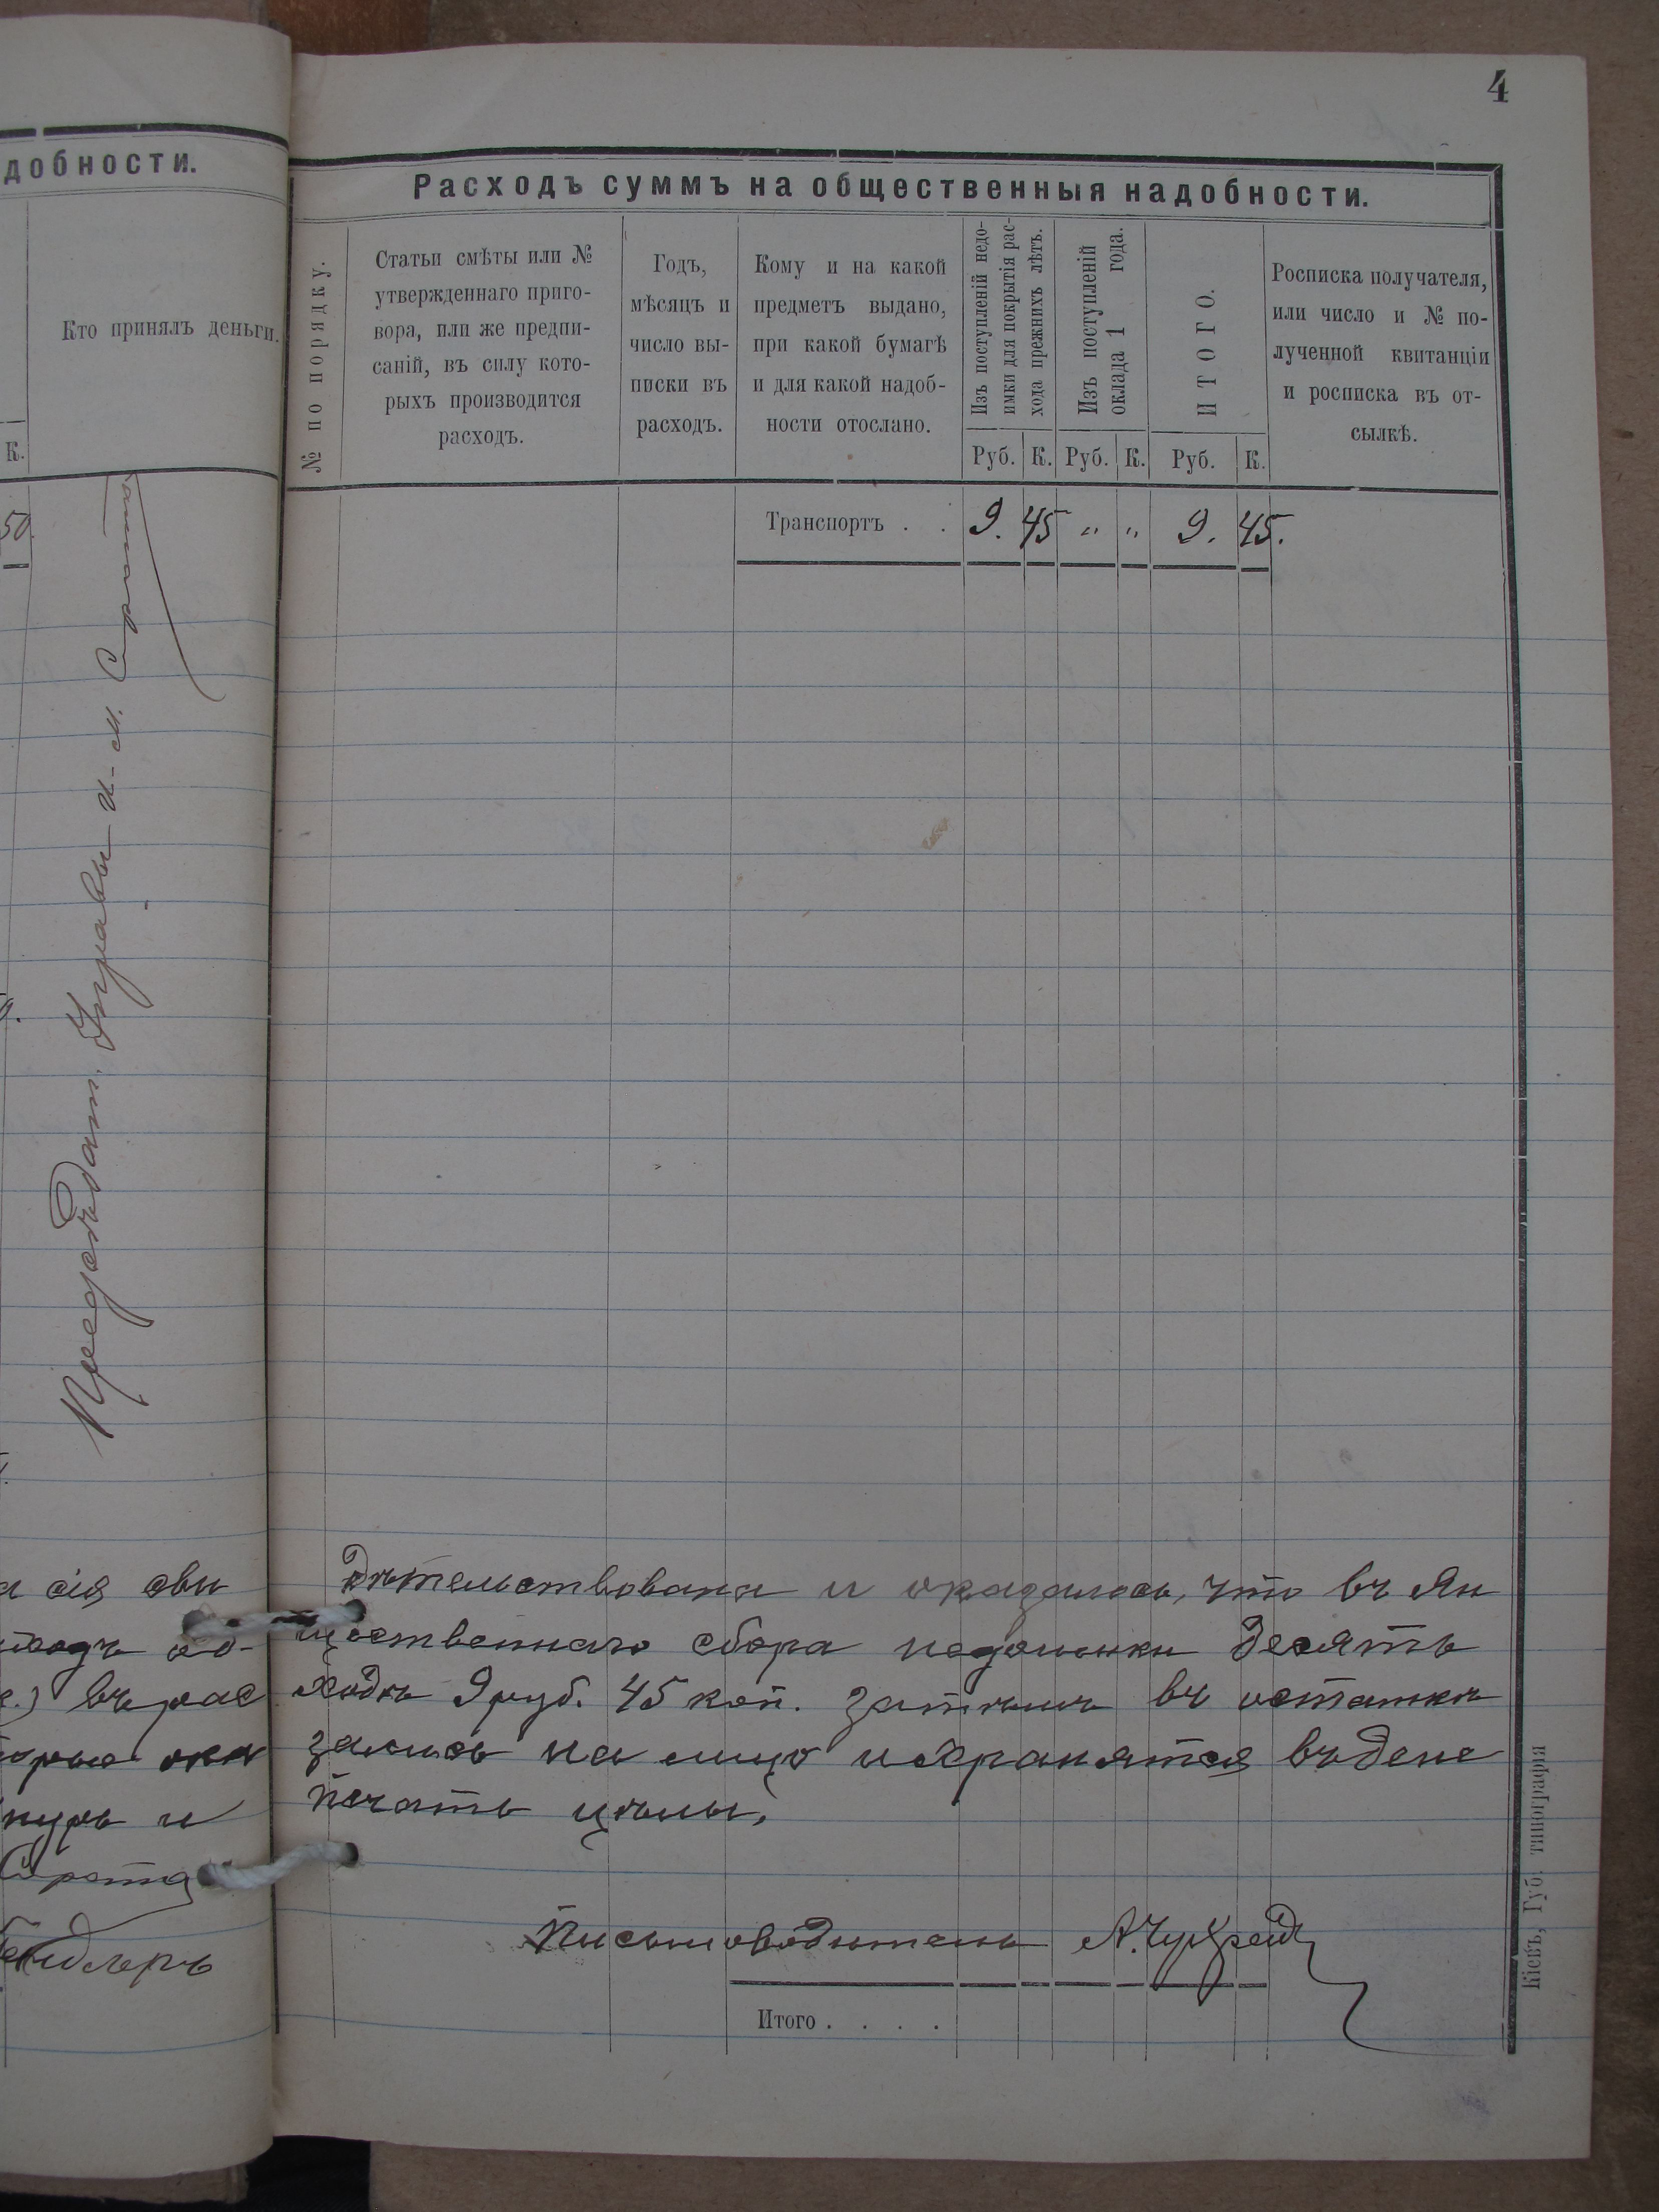 4
добности.
Кто принялъ деньги.
К.
50.
Предсѣдат. Управы И. М. Сирота
а сія сви
ходъ об-
въ рас
торые ока
нуръ и
Сирота
Расходъ суммъ на общественныя надобности.
№ по порядку.
Статьи смѣты или №
утвержденнаго приго-
вора, или же предпи-
саній, въ силу кото-
рыхъ производится
расходъ.
Годъ,
мѣсяцъ и
число вы-
писки въ
расходъ.
Кому и на какой
предметъ выдано,
при какой бумагѣ
и для какой надоб-
ности отослано.
Изъ поступленій недо-
имки для покрытія рас-
хода прежнихъ лѣтъ.
Изъ поступленій
оклада 1 года.
ИТОГО.
Росписка получателя,
или число и № по-
лученной квитанціи
и росписка въ от-
сылкѣ.
Руб. К. Руб. К. Руб. К.
Транспортъ . . 9. 45 „ „ 9. 45.
дѣтельствована и оказалось, что въ Ян
щественнаго сбора недоимки десять
ходъ 9 руб. 45 коп. затѣмъ въ остаткѣ
зались на лицо и хранятся въ дене
печать цѣлы.
Письмоводитель А.
Итого . . . .
Кіевъ, Губ. типографія